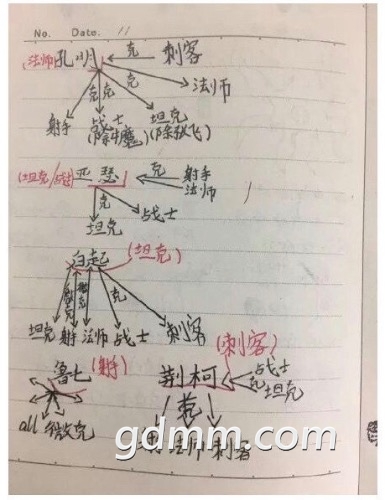 No. Date. 11
(法师)孔明 克 刺客
克 克 法师
射手 战士 坦克
(除牛魔) (除张飞)
(坦克/战士) 亚瑟 克 射手
法师
克 战士
坦克
白起 (坦克)
克
坦克 射手 法师 战士 刺客
鲁七 (射手) 荆柯 (刺客)
克 战士
坦克
克
all 微克 法师 刺客
gdmm.com